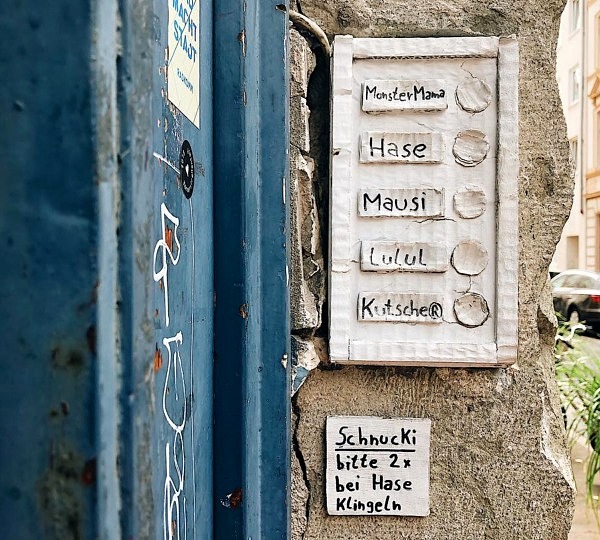 MACHT
STADT
MonsterMama
Hase
Mausi
Lulul
Kutsche®
Schnucki
bitte 2x
bei Hase
Klingeln